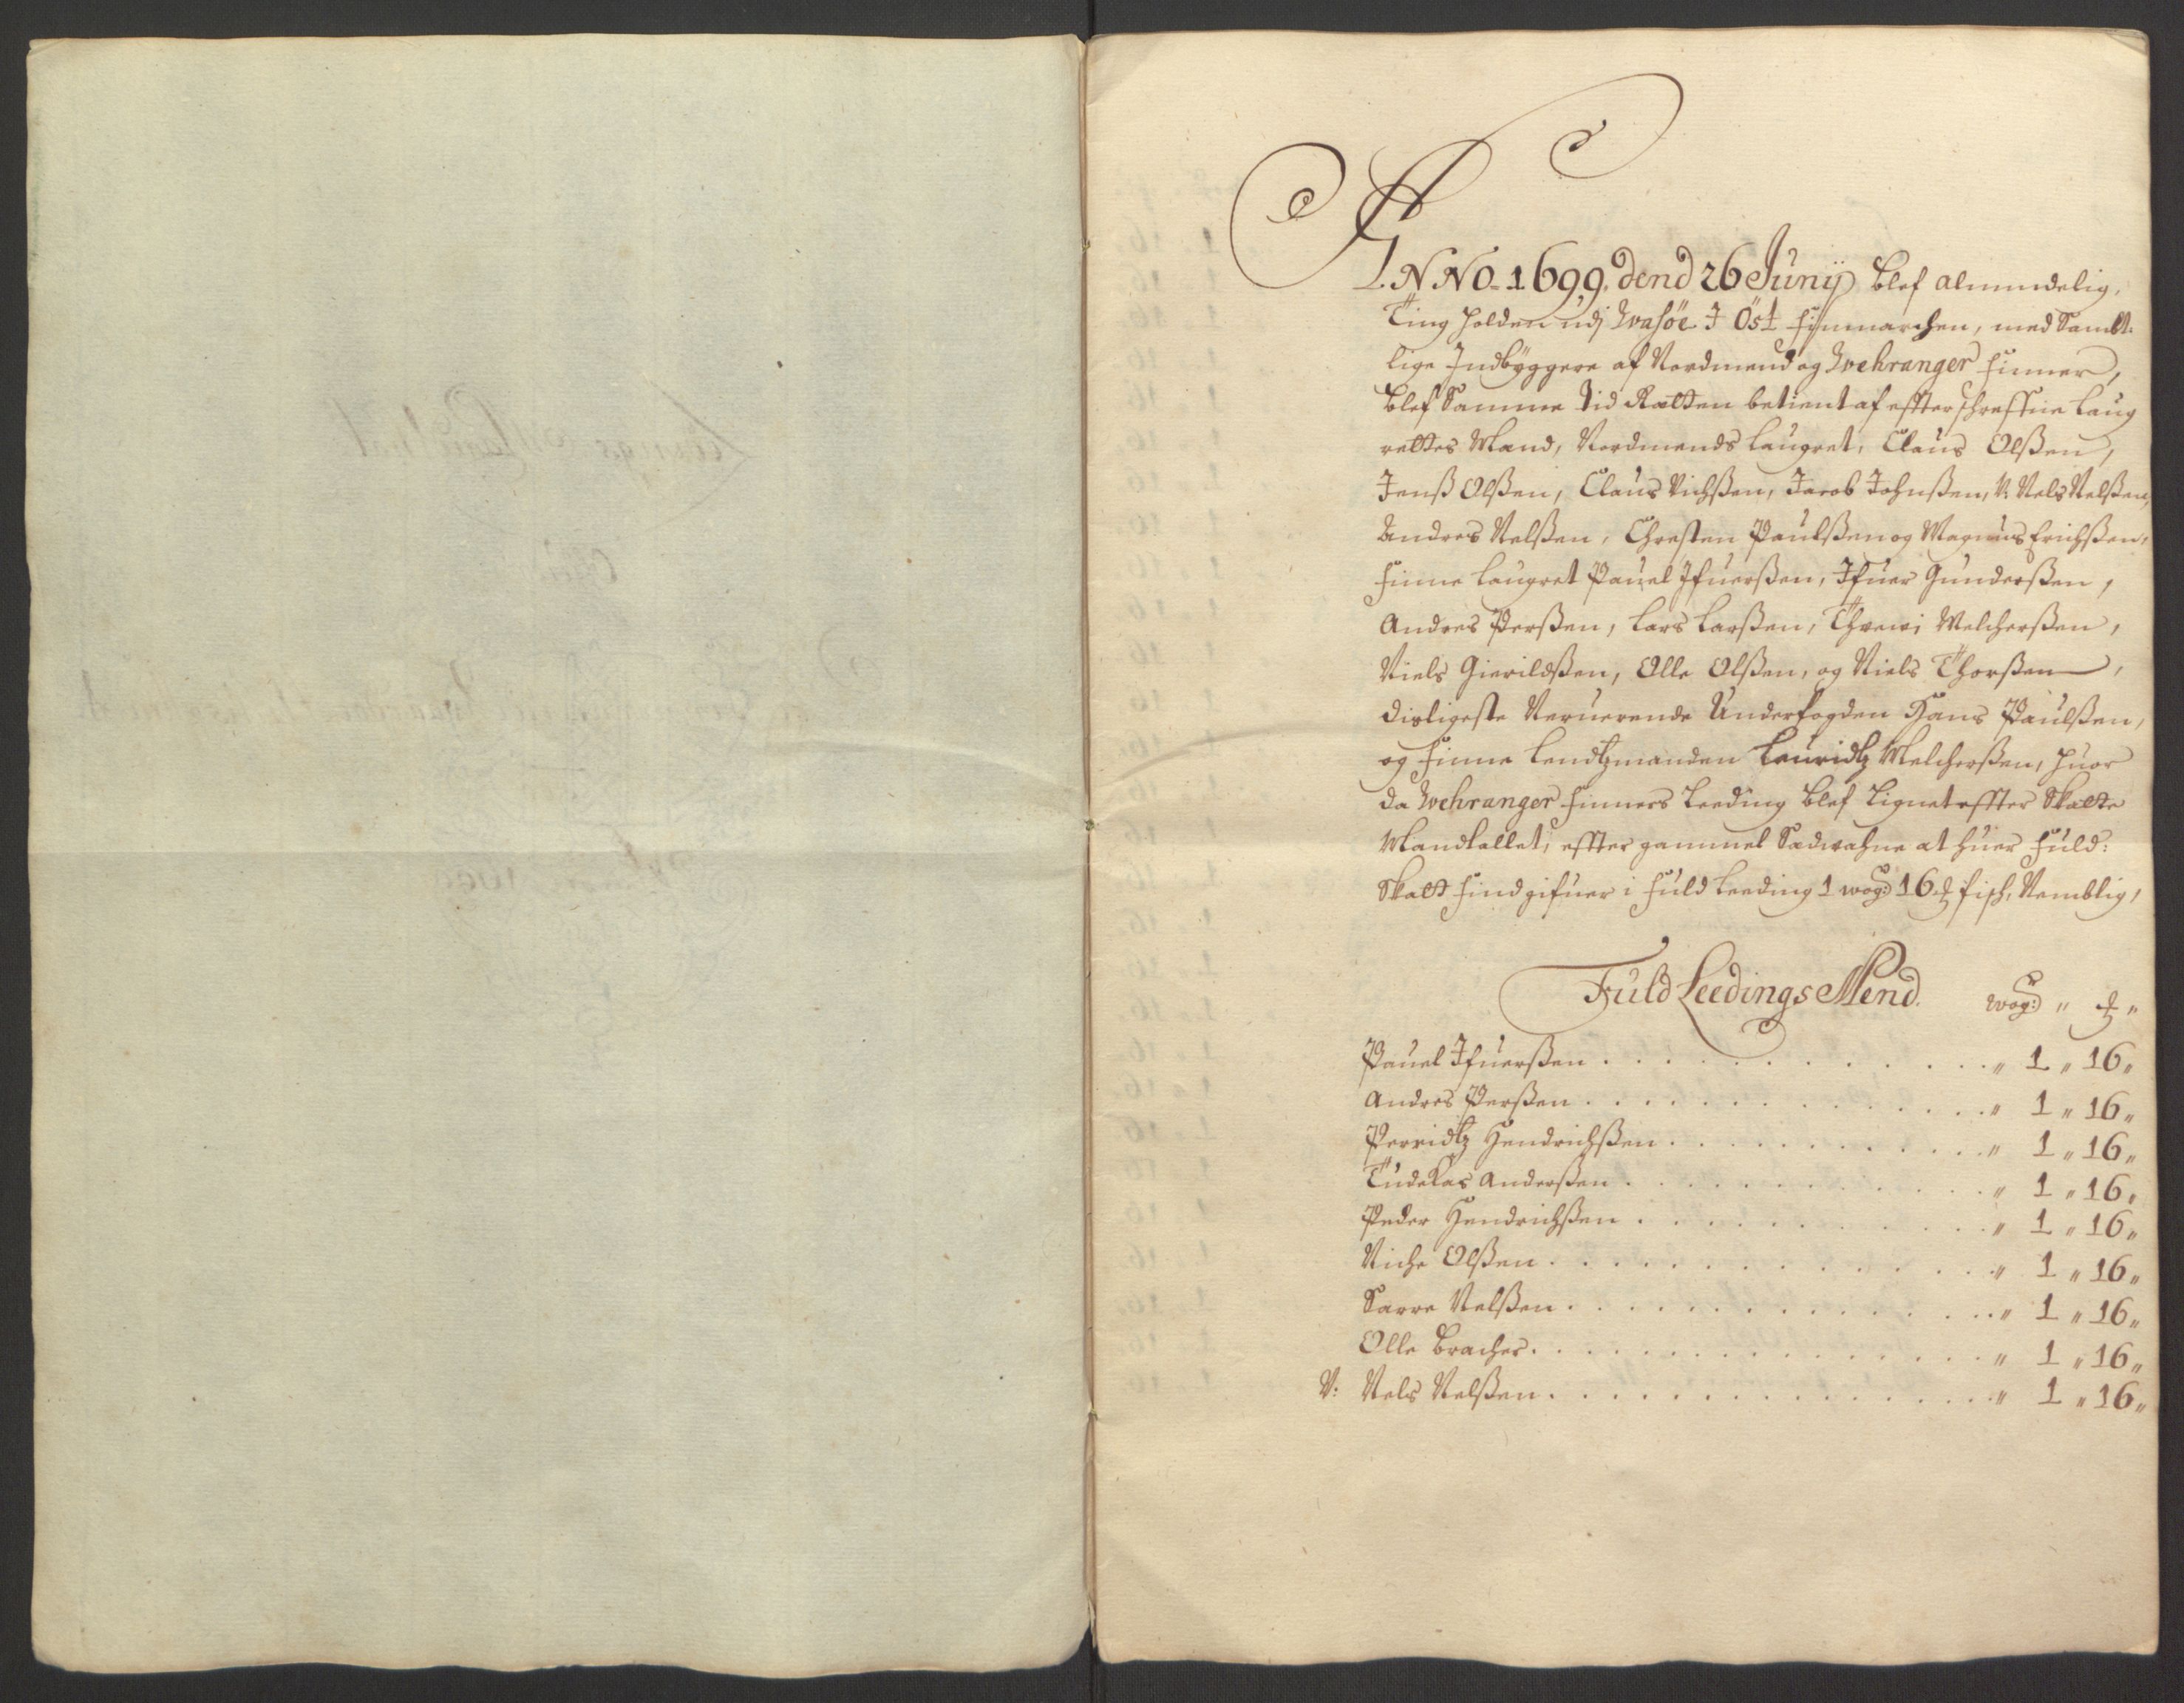 ANNO 1699. dend 26 Junij blef almindelig,
Ting holden udj Wasöe J Öst finmarchen, med Sambt:
lige Indbÿggere af Nordmend og Wehranger finner,
blef Samme Tid Rætten betient af effterschreffne Laug
rettes Mænd, Nordmends Laugret, Claus Olßen,
Jenß Olßen, Claus Nichßen, Jacob Johnßen, V: Nels Nelßen,
Andres Nelßen, Christen Paulßen og Magnus Erichßen,
finne Laugret Pauel Jfuerßen, Jfuer Gunderßen,
Andres Perßen, Lars Larßen, Melcherßen,
Niels Gierildßen, Olle Olßen, og Niels Thorßen,
disligeste Neruerende Underfogden Hans Paulßen,
og finne Lendtzmanden Lauridtz Melcherßen, huor
da Wehranger finners Leeding blef Lignet effter Skatte
Mandtallet, effter gammel Sædwahne at huer fuld:
Skatt find gifuer i fuld Leeding 1 wog: 16 ℔ fisk, Nemblig,
Fuld Leedings Mend. wog: " ℔ "
Pauel Jfuerßen . . . " 1 " 16 "
Andres Perßen . . . " 1 " 16 "
Perridtz Hendrichßen . . . " 1 " 16 "
Tudekas Anderßen . . . " 1 " 16 "
Peder Hendrichßen . . . " 1 " 16 "
Niche Olßen . . . " 1 " 16 "
Sarre Nelßen . . . " 1 " 16 "
Olle Bracher . . . " 1 " 16 "
V: Nels Nelßen . . . " 1 " 16 "